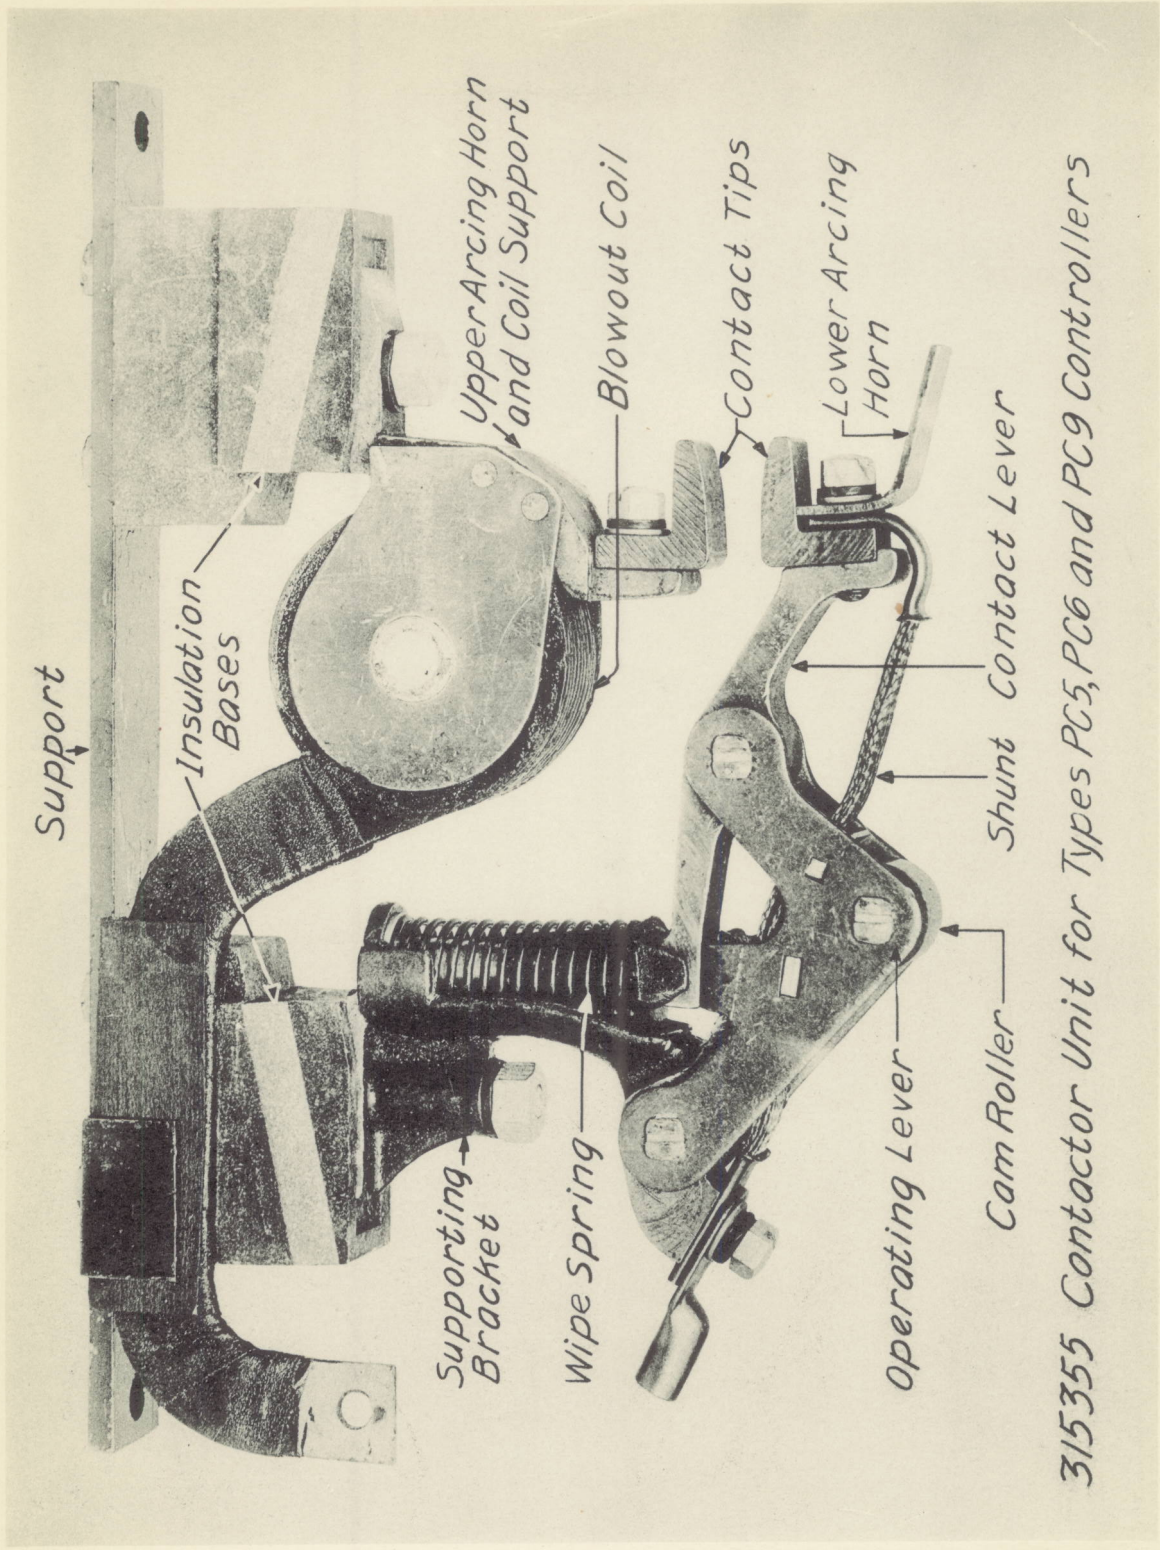 Support
Insulation
Bases
Upper Arcing Horn
and Coil Support
Blowout Coil
Contact Tips
Lower Arcing
Horn
Supporting
Bracket
Wipe Spring
Operating Lever
Cam Roller
Shunt
Contact Lever
315355 Contactor Unit for Types PC5, PC6 and PC9 Controllers